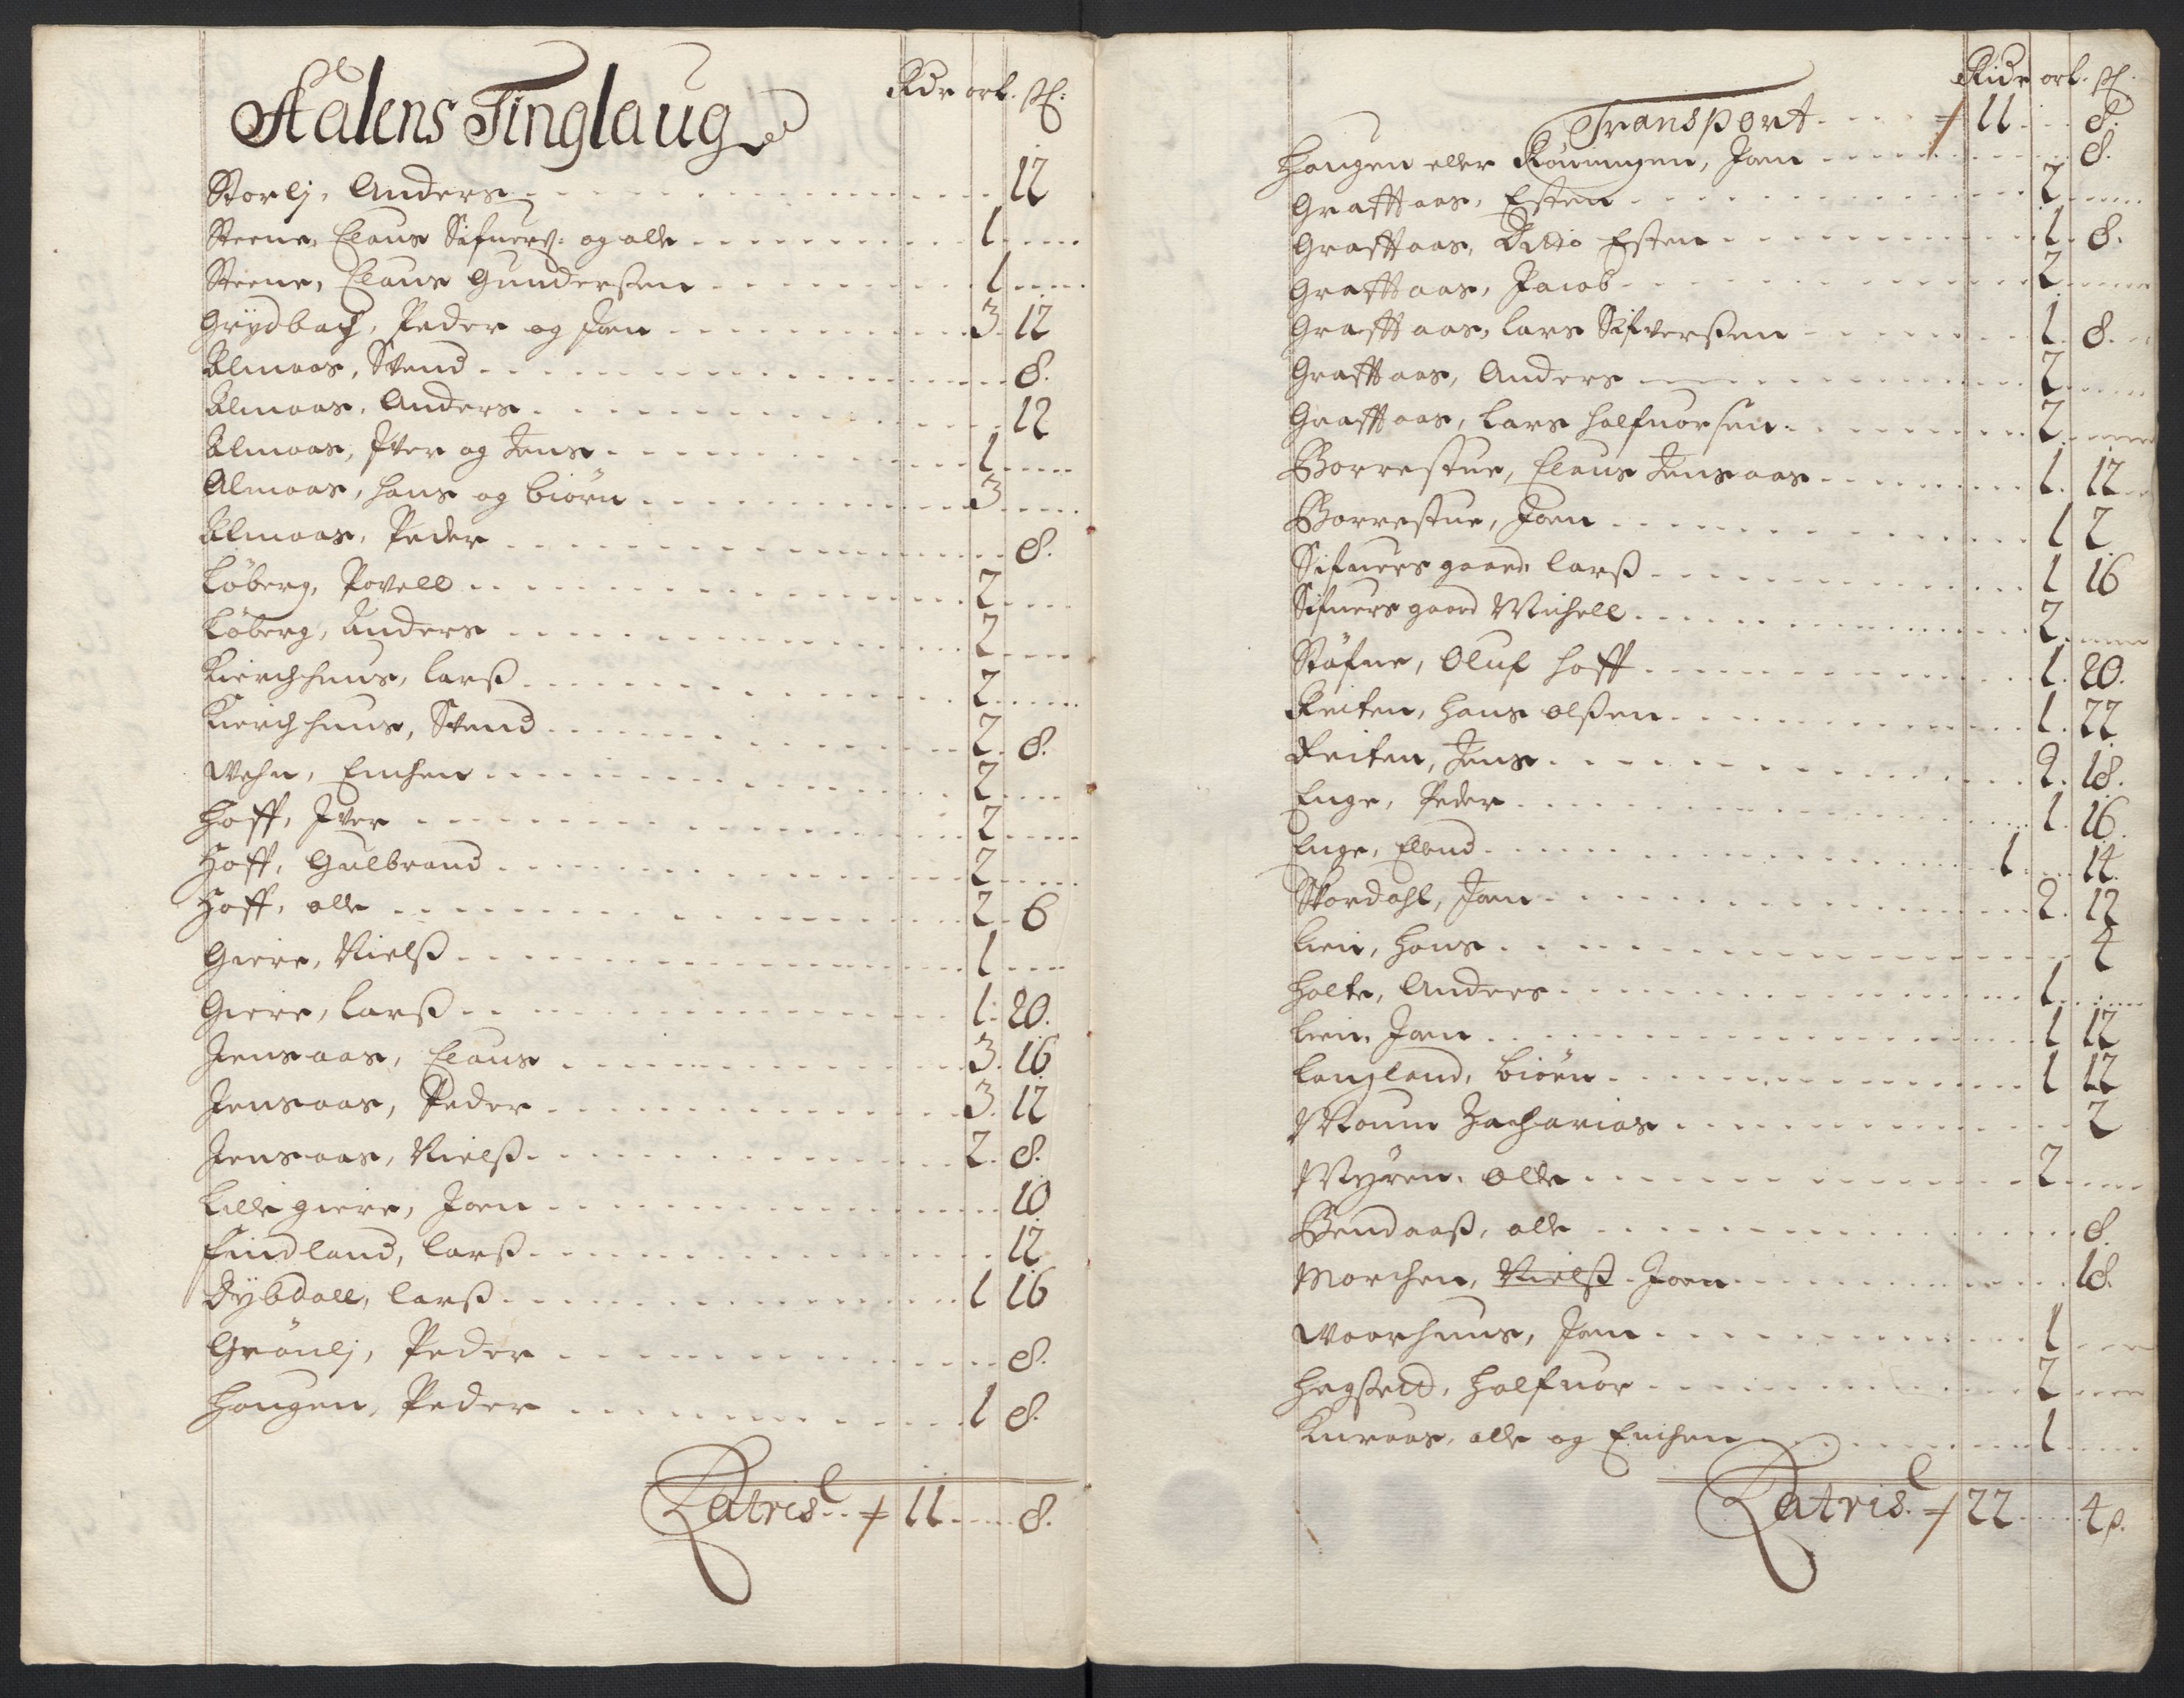 Aalens Tinglaug
Rdr ort. ß:
Storlj, Anders 12
Steene, Claus Sifuers: og olle 1
Steene, Claus Gunderßen 1
Grydbach, Peder og Joen 3. 12
Almaas, Svend 8.
Almaas, Anders 12
Almaas, Iver og Jens 1
Almaas, Hans og Biörn 3
Almaas, Peder 8.
Löberg, Povell 2
Löberg, Anders 2
Kierchhuus, Larß 2
Kierchhuus, Svend 2. 8.
Wehn, Emhen 2
Hoff, Iver 2
Hoff, Gulbrand 2
Hoff, olle 2 6
Giere, Nielß 1
Giere, Larß 1. 20.
Jensaas, Claus 3. 16
Jensaas, Peder 3. 12
Jensaas, Nielß 2. 8.
Lille giere, Joen 10
Findland, Larß 12
Dybdall, Larß 1 16
Grönlj, Peder 8.
Hougen, Peder 1 8.
Latris 11 8.
Ridr ort. ß.
Transport 11 8.
Hougen eller Röningen, Joen 8.
Graftaas, Esten 2
Graftaas, Ditto Esten 1. 8.
Graftaas, Jacob 2
Graftaas, Lars Sifverßen 1. 8.
Graftaas, Anders 2
Graftaas, Lars Halfuorsen 2
Borrestue, Claus Jensaas 1. 12
Borrestue, Joen 1 2
Sifuers gaard Larß 1 16
Sifuers gaard Michell 2
Stöfne, Oluf Hoff 1. 20.
Reiten, Hans olßen 1. 22
Reiten, Jens 2. 18.
Enge, Peder 1. 16.
Enge, Elend 1 14.
Skordahl, Joen 2. 12
Lien, Hans 4
Holte, Anders 1
Lien, Joen 1 12
Langland, Biörn 1 12
Moum Zacharias 2
Myren, Olle 2
Bendaaß, olle 8.
Morchen, Nielß Joen 18.
Woorhuus, Joen 1
Hegßett, Halfuor 2
Kuraas, olle og Emhen 1
Latris. 22 4 ß.